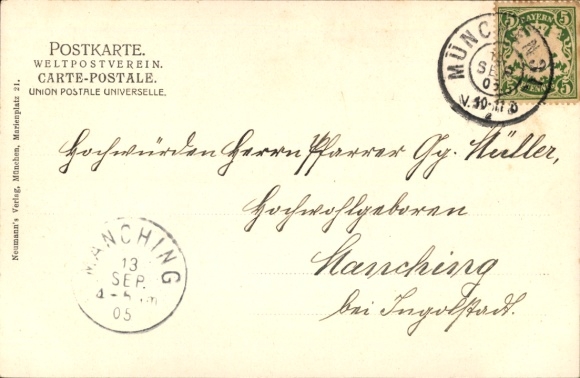 POSTKARTE.
WELTPOSTVEREIN.
CARTE-POSTALE.
UNION POSTALE UNIVERSELLE.
5 BAYERN 5
5 5
MÜNCHEN
SEP
05
V. 10-11
Hochwürden Herrn Pfarrer Gg. Müller,
Hochwohlgeboren
Manching
bei Ingolstadt.
MANCHING
13
SEP.
05
Neumann's Verlag, München, Marienplatz 21.